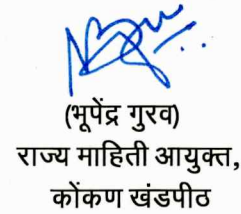 (भूपेंद्र गुरव)
राज्य माहिती आयुक्त,
कोंकण खंडपीठ